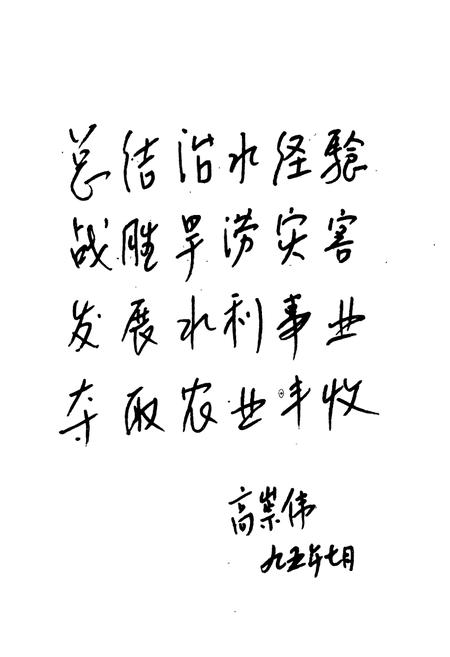 总结治水经验
战胜旱涝灾害
发展水利事业
夺取农业丰收
高崇伟
九五年七月